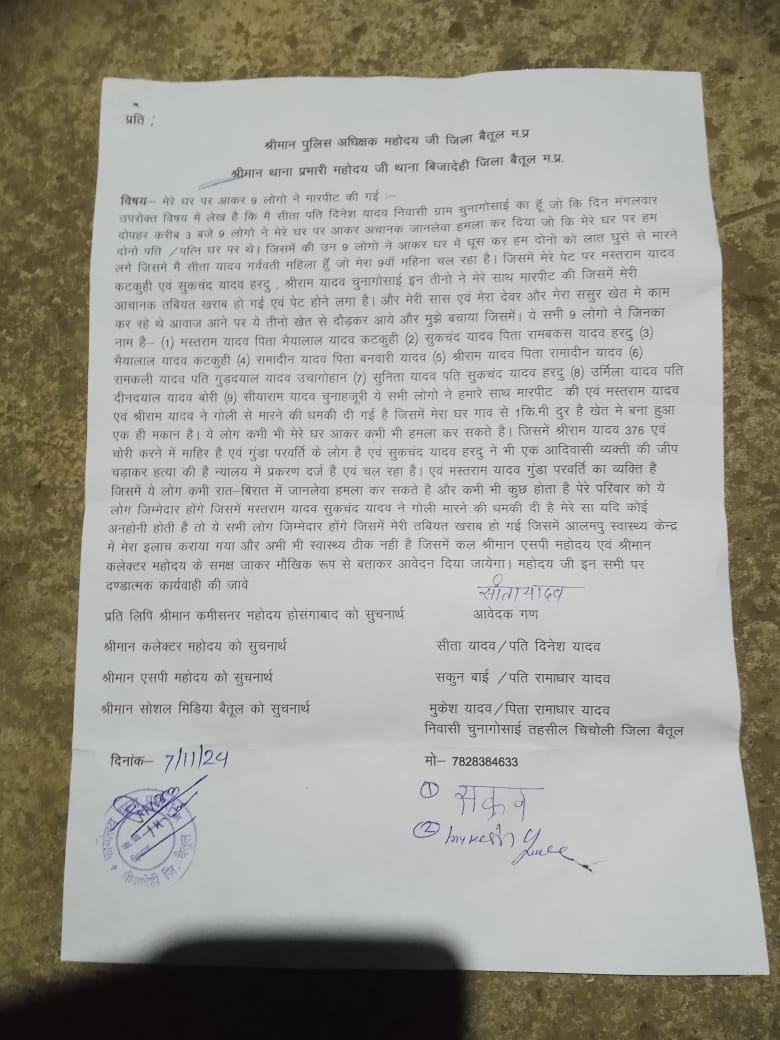 प्रति :
श्रीमान पुलिस अधिक्षक महोदय जी जिला बैतूल म.प्र
श्रीमान थाना प्रभारी महोदय जी थाना बिजादेही जिला बैतूल म.प्र.
विषय– मेरे घर पर आकर 9 लोगो ने मारपीट की गई :–
उपरोक्त विषय में लेख है कि मै सीता पति दिनेश यादव निवासी ग्राम चुनागोसाई का हूँ जो कि दिन मंगलवार
दोपहर करीब 3 बजे 9 लोगो ने मेरे घर पर आकर अचानक जानलेवा हमला कर दिया जो कि मेरे घर पर हम
दोनो पति /पत्नि घर पर थे। जिसमें की उन 9 लोगो ने आकर घर में घूस कर हम दोनो को लात घुसे से मारने
लगे जिसमे मै सीता यादव गर्ववती महिला हूँ जो मेरा 9वॉ महिना चल रहा है। जिसमें मेरे पेट पर मस्तराम यादव
कटकुही एवं सुकचंद यादव हरदु , श्रीराम यादव चुनागोसाई इन तीनो ने मेरे साथ मारपीट की जिसमें मेरी
आचानक तबियत खराब हो गई एवं पेट होने लगा है। और मेरी सास एवं मेरा देवर और मेरा ससुर खेत मे काम
कर रहे थे आवाज आने पर ये तीनो खेत से दौड़कर आये और मुझे बचाया जिसमें। ये सभी 9 लोगो ने जिनका
नाम है– (1) मस्तराम यादव पिता भैयालाल यादव कटकुही (2) सुकचंद यादव पिता रामबकस यादव हरदु (3)
भैयालाल यादव कटकुही (4) रामादीन यादव पिता बनवारी यादव (5) श्रीराम यादव पिता रामादीन यादव (6)
रामकली यादव पति गुड़दयाल यादव उचागोहान (7) सुनिता यादव पति सुकचंद यादव हरदु (8) उर्मिला यादव पति
दीनदयाल यादव बोरी (9) सीयाराम यादव चुनाहजूरी ये सभी लोगो ने हमारे साथ मारपीट की एवं मस्तराम यादव
एवं श्रीराम यादव ने गोली से मारने की धमकी दी गई है जिसमें मेरा घर गाव से 1कि.मी दुर है खेत मे बना हुआ
एक ही मकान है। ये लोग कभी भी मेरे घर आकर कभी भी हमला कर सकते है। जिसमें श्रीराम यादव 376 एवं
चोरी करने में माहिर है एवं गुंडा परवर्ति के लोग है एवं सुकचंद यादव हरदु ने भी एक आदिवासी व्यक्ती की जीप
चड़ाकर हत्या की है न्यालय में प्रकरण दर्ज है एवं चल रहा है। एवं मस्तराम यादव गुंडा परवर्ति का व्यक्ति है
जिसमें ये लोग कभी रात–बिरात में जानलेवा हमला कर सकते है और कभी भी कुछ होता है पेरे परिवार को ये
लोग जिम्मेदार होंगे जिसमें मस्तराम यादव सुकचंद यादव ने गोली मारने की धमकी दी है मेरे सा यदि कोई
अनहोनी होती है तो ये सभी लोग जिम्मेदार होंगे जिसमें मेरी तबियत खराब हो गई जिसमें आलमपु स्वास्थ्य केन्द्र
में मेरा इलाच कराया गया और अभी भी स्वास्थ्य ठीक नही है जिसमें कल श्रीमान एसपी महोदय एवं श्रीमान
कलेक्टर महोदय के समक्ष जाकर मौखिक रूप से बताकर आवेदन दिया जायेगा। महोदय जी इन सभी पर
दण्डात्मक कार्यवाही की जावे
सीतायादव
प्रति लिपि श्रीमान कमीसनर महोदय होसंगाबाद को सुचनार्थ आवेदक गण
श्रीमान कलेक्टर महोदय को सुचनार्थ सीता यादव/पति दिनेश यादव
श्रीमान एसपी महोदय को सुचनार्थ सकुन बाई /पति रामाधार यादव
श्रीमान सोशल मिडिया बैतूल को सुचनार्थ मुकेश यादव/पिता रामाधार यादव
निवासी चुनागोसाई तहसील चिचोली जिला बैतूल
दिनांक– 7/11/24 मो– 7828384633
① सकुन
②
बीजादेही जि. बैतूल